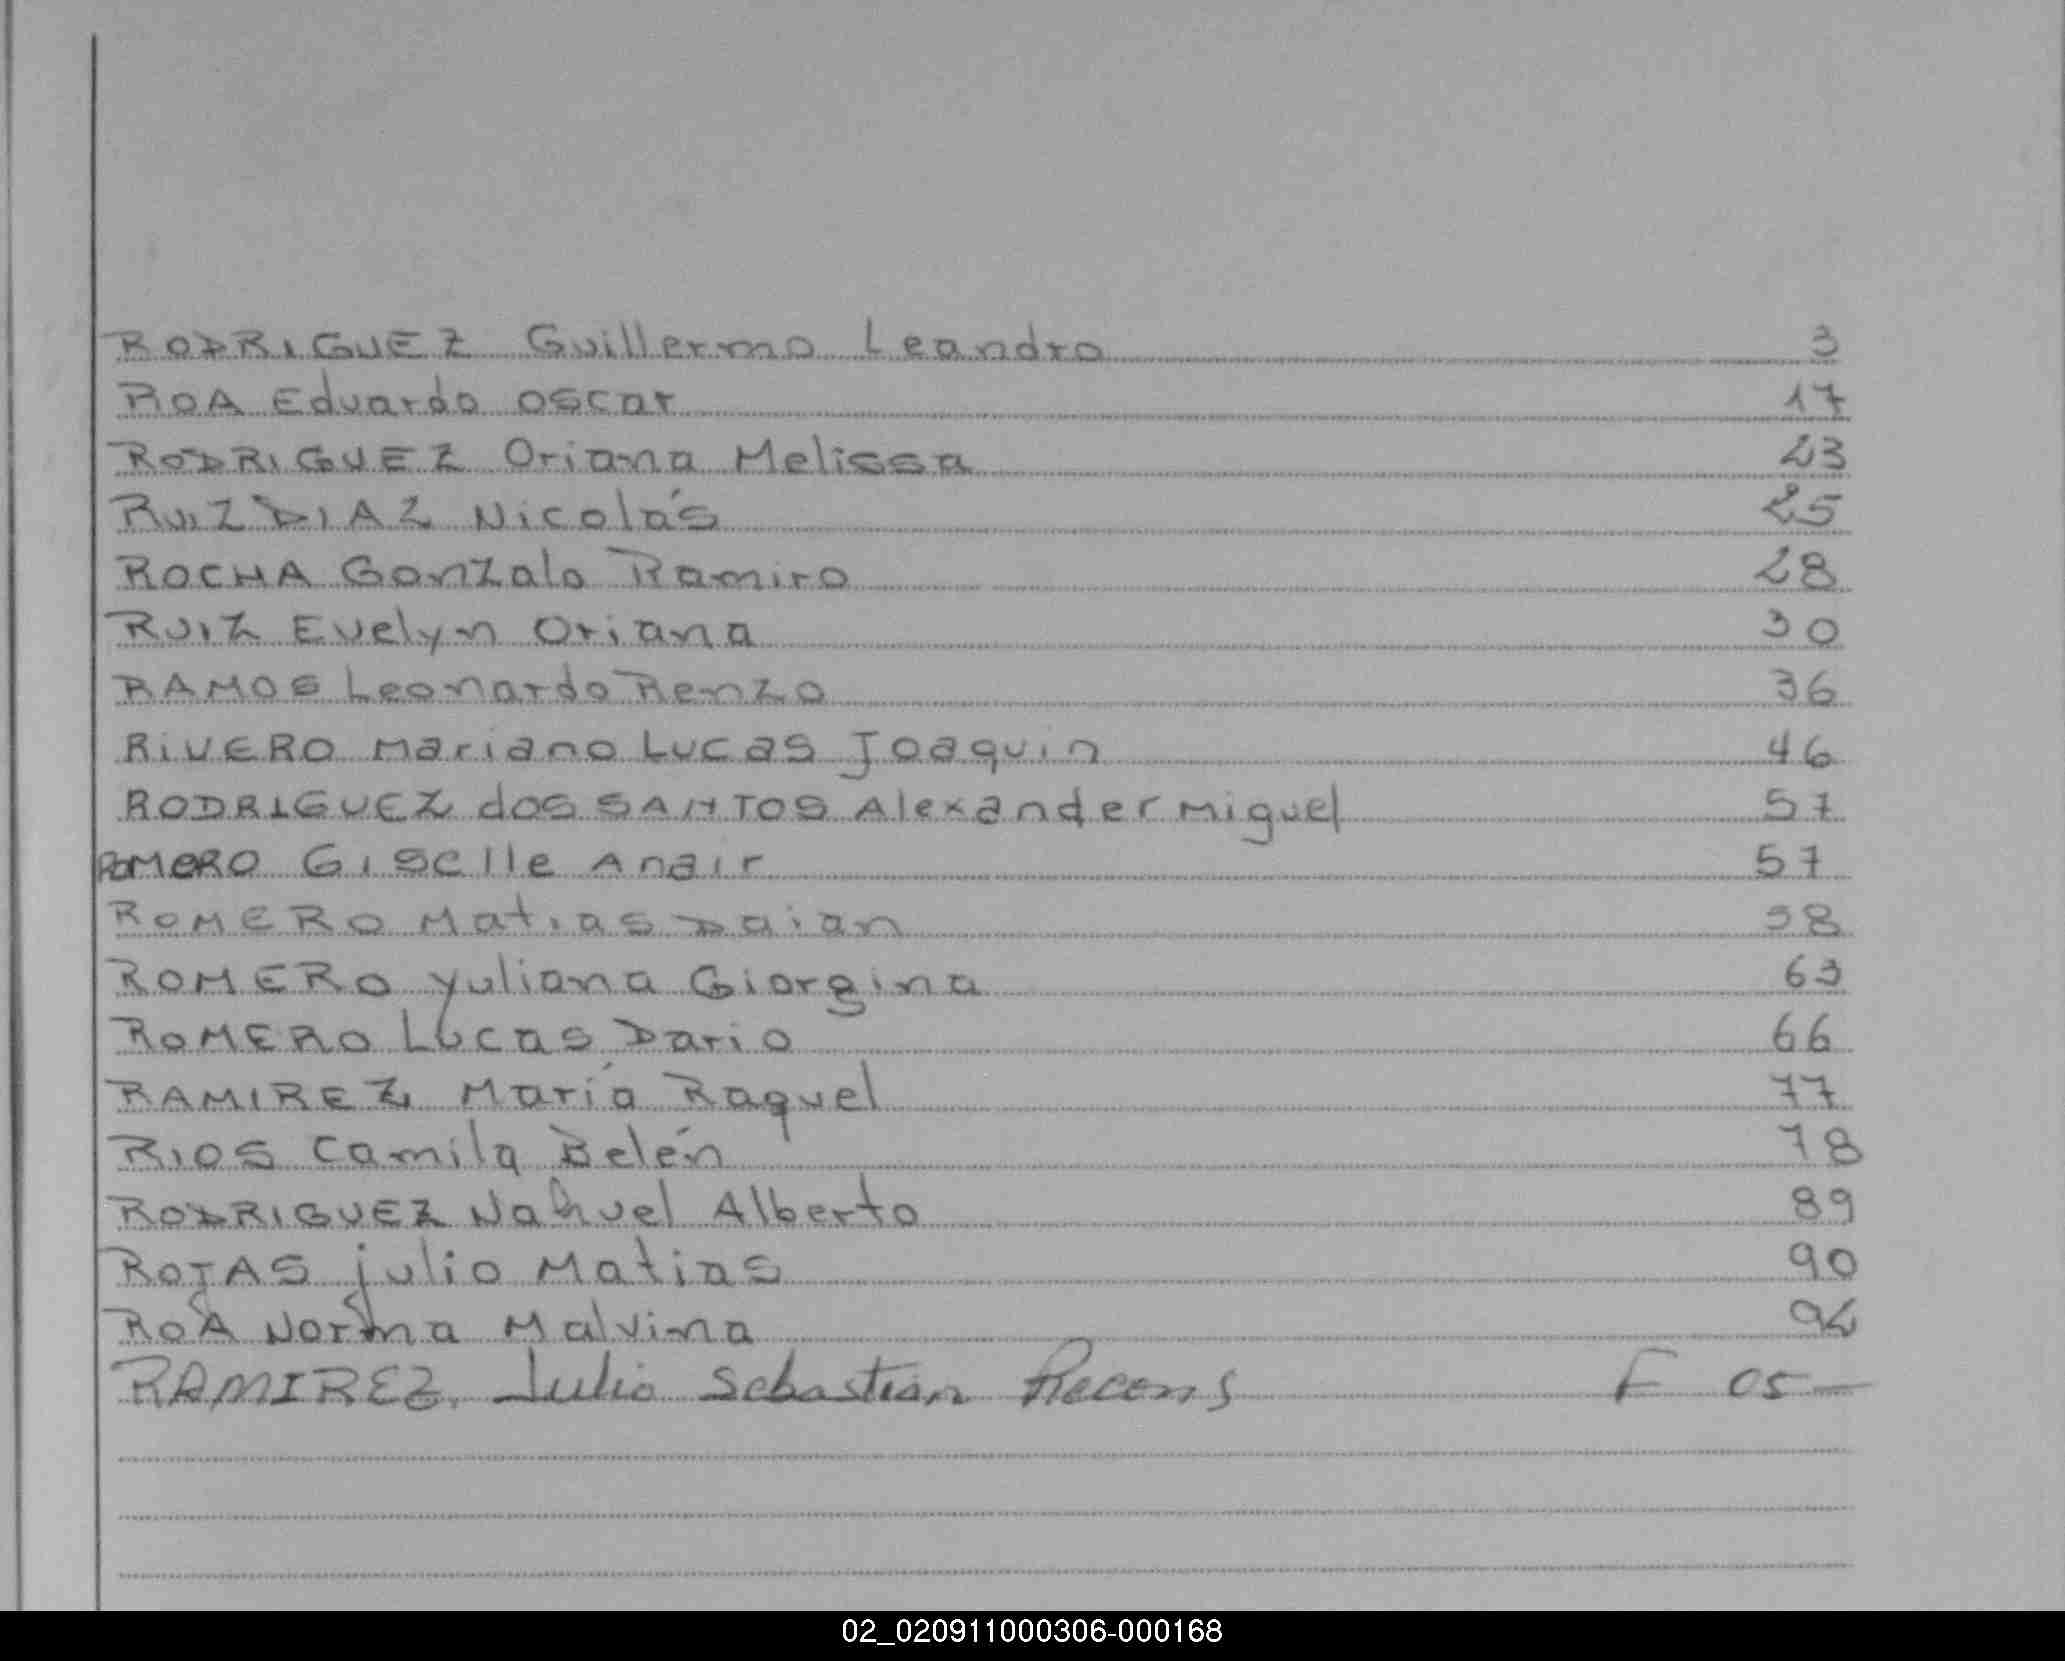 RODRIGUEZ Guillermo Leandro 3
ROA Eduardo Oscar 17
RODRIGUEZ Oriana Melissa 23
RUIZ DIAZ Nicolás 25
ROCHA Gonzalo Ramiro 28
RUIZ Evelyn Oriana 30
RAMOS Leonardo Renzo 36
RIVERO Mariano Lucas Joaquin 46
RODRIGUEZ dos SANTOS Alexander Miguel 57
ROMERO Giselle Anair 57
ROMERO Matias Daian 58
ROMERO Yuliana Giorgina 63
ROMERO Lucas Dario 66
RAMIREZ María Raquel 77
RIOS Camila Belén 78
RODRIGUEZ Nahuel Alberto 89
ROJAS Julio Matias 90
ROA Norma Malvina 94
RAMIREZ, Julio Sebastian F 05-
02_020911000306-000168